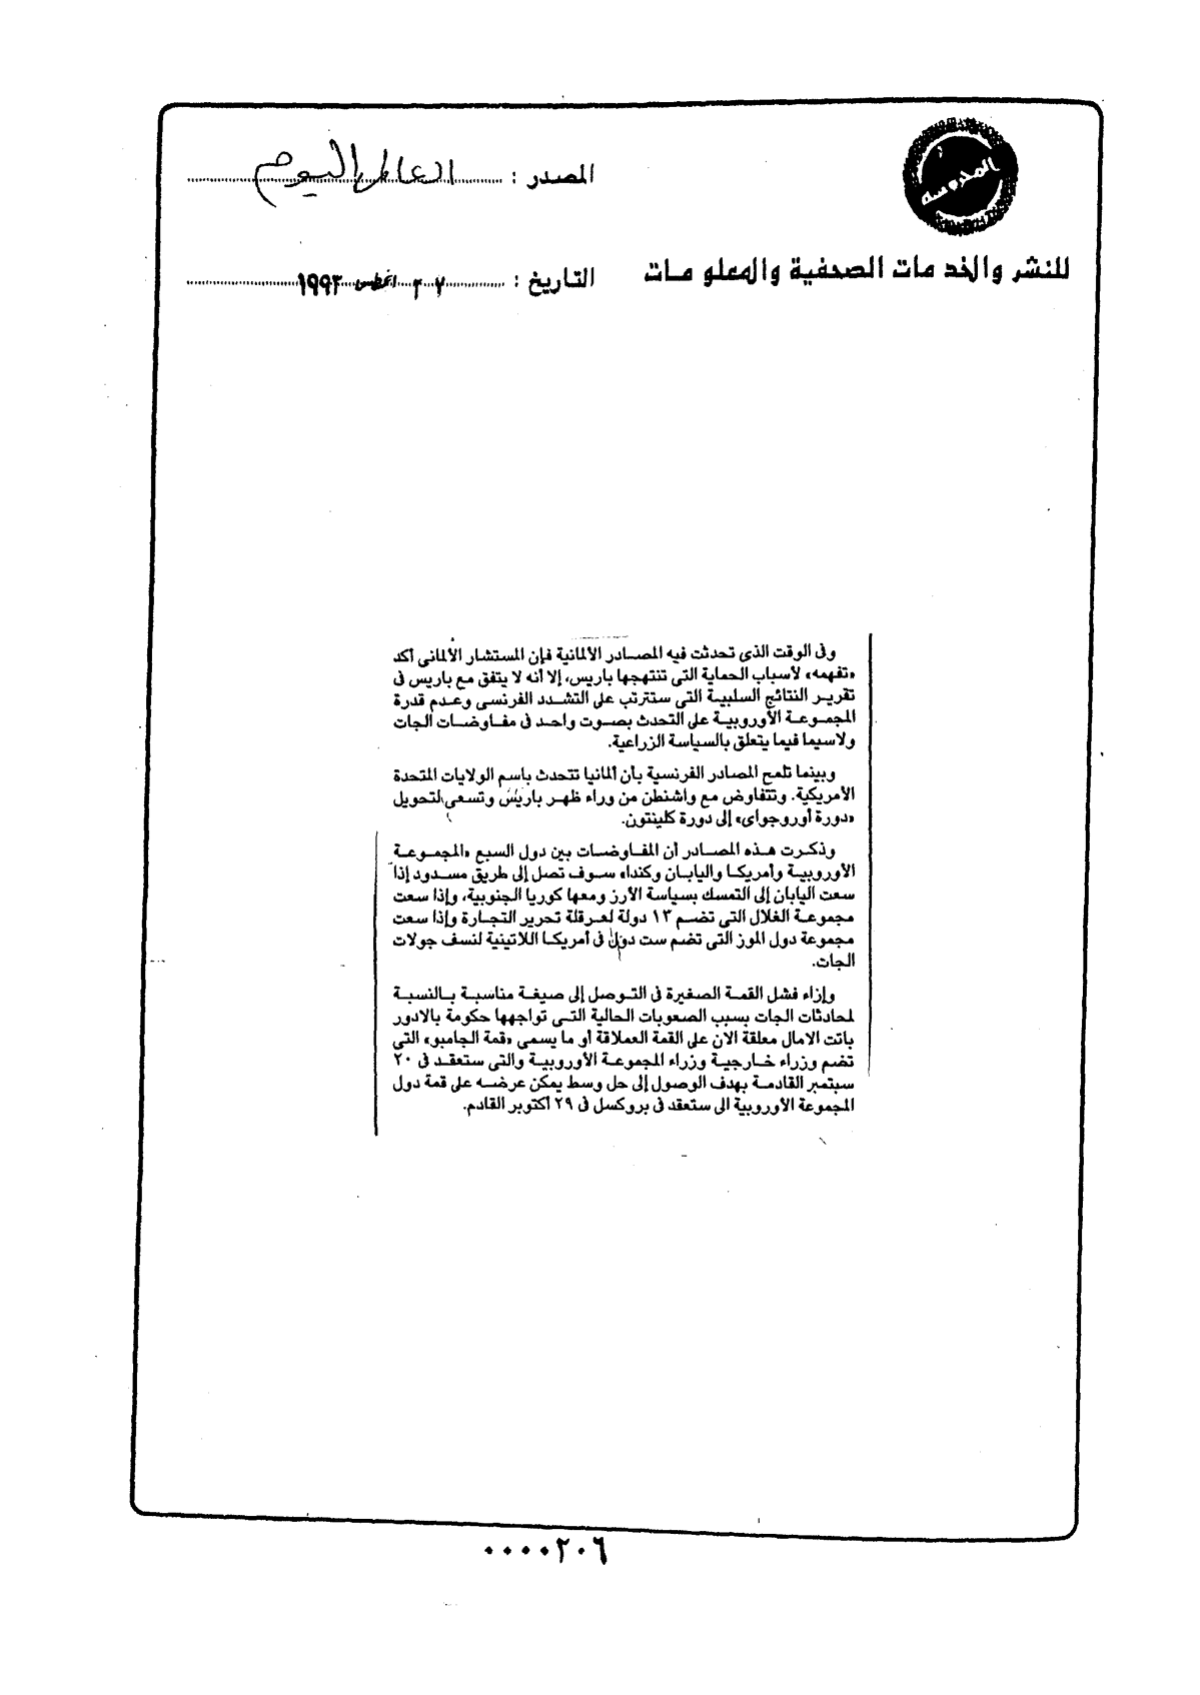 المدروسة
المصدر : العالم اليوم
للنشر والخدمات الصحفية والمعلومات
التاريخ : ٢٠٧ اغسطس ١٩٩٣
وفى الوقت الذى تحدثت فيه المصادر الألمانية فإن المستشار الألمانى أكد
«تفهمه» لأسباب الحماية التى تنتهجها باريس، إلا أنه لا يتفق مع باريس فى
تقرير النتائج السلبية التى ستترتب على التشدد الفرنسى وعدم قدرة
المجموعة الأوروبية على التحدث بصوت واحد فى مفاوضات الجات
ولاسيما فيما يتعلق بالسياسة الزراعية.
وبينما تلمح المصادر الفرنسية بأن ألمانيا تتحدث باسم الولايات المتحدة
الأمريكية. وتتفاوض مع واشنطن من وراء ظهر باريس وتسعى لتحويل
«دورة أوروجواى» إلى دورة كلينتون.
وذكرت هذه المصادر أن المفاوضات بين دول السبع «المجموعة
الأوروبية وأمريكا واليابان وكندا» سوف تصل إلى طريق مسدود إذا
سعت اليابان إلى التمسك بسياسة الأرز ومعها كوريا الجنوبية، وإذا سعت
مجموعة الغلال التى تضم ١٣ دولة لعرقلة تحرير التجارة وإذا سعت
مجموعة دول الموز التى تضم ست دول فى أمريكا اللاتينية لنسف جولات
الجات.
وإزاء فشل القمة الصغيرة فى التوصل إلى صيغة مناسبة بالنسبة
لمحادثات الجات بسبب الصعوبات الحالية التى تواجهها حكومة بالادور
باتت الامال معلقة الان على القمة العملاقة أو ما يسمى «قمة الجامبو» التى
تضم وزراء خارجية وزراء المجموعة الأوروبية والتى ستعقد فى ٢٠
سبتمبر القادمة بهدف الوصول إلى حل وسط يمكن عرضه على قمة دول
المجموعة الأوروبية الى ستعقد فى بروكسل فى ٢٩ أكتوبر القادم.
٠٠٠٠٢٠٦